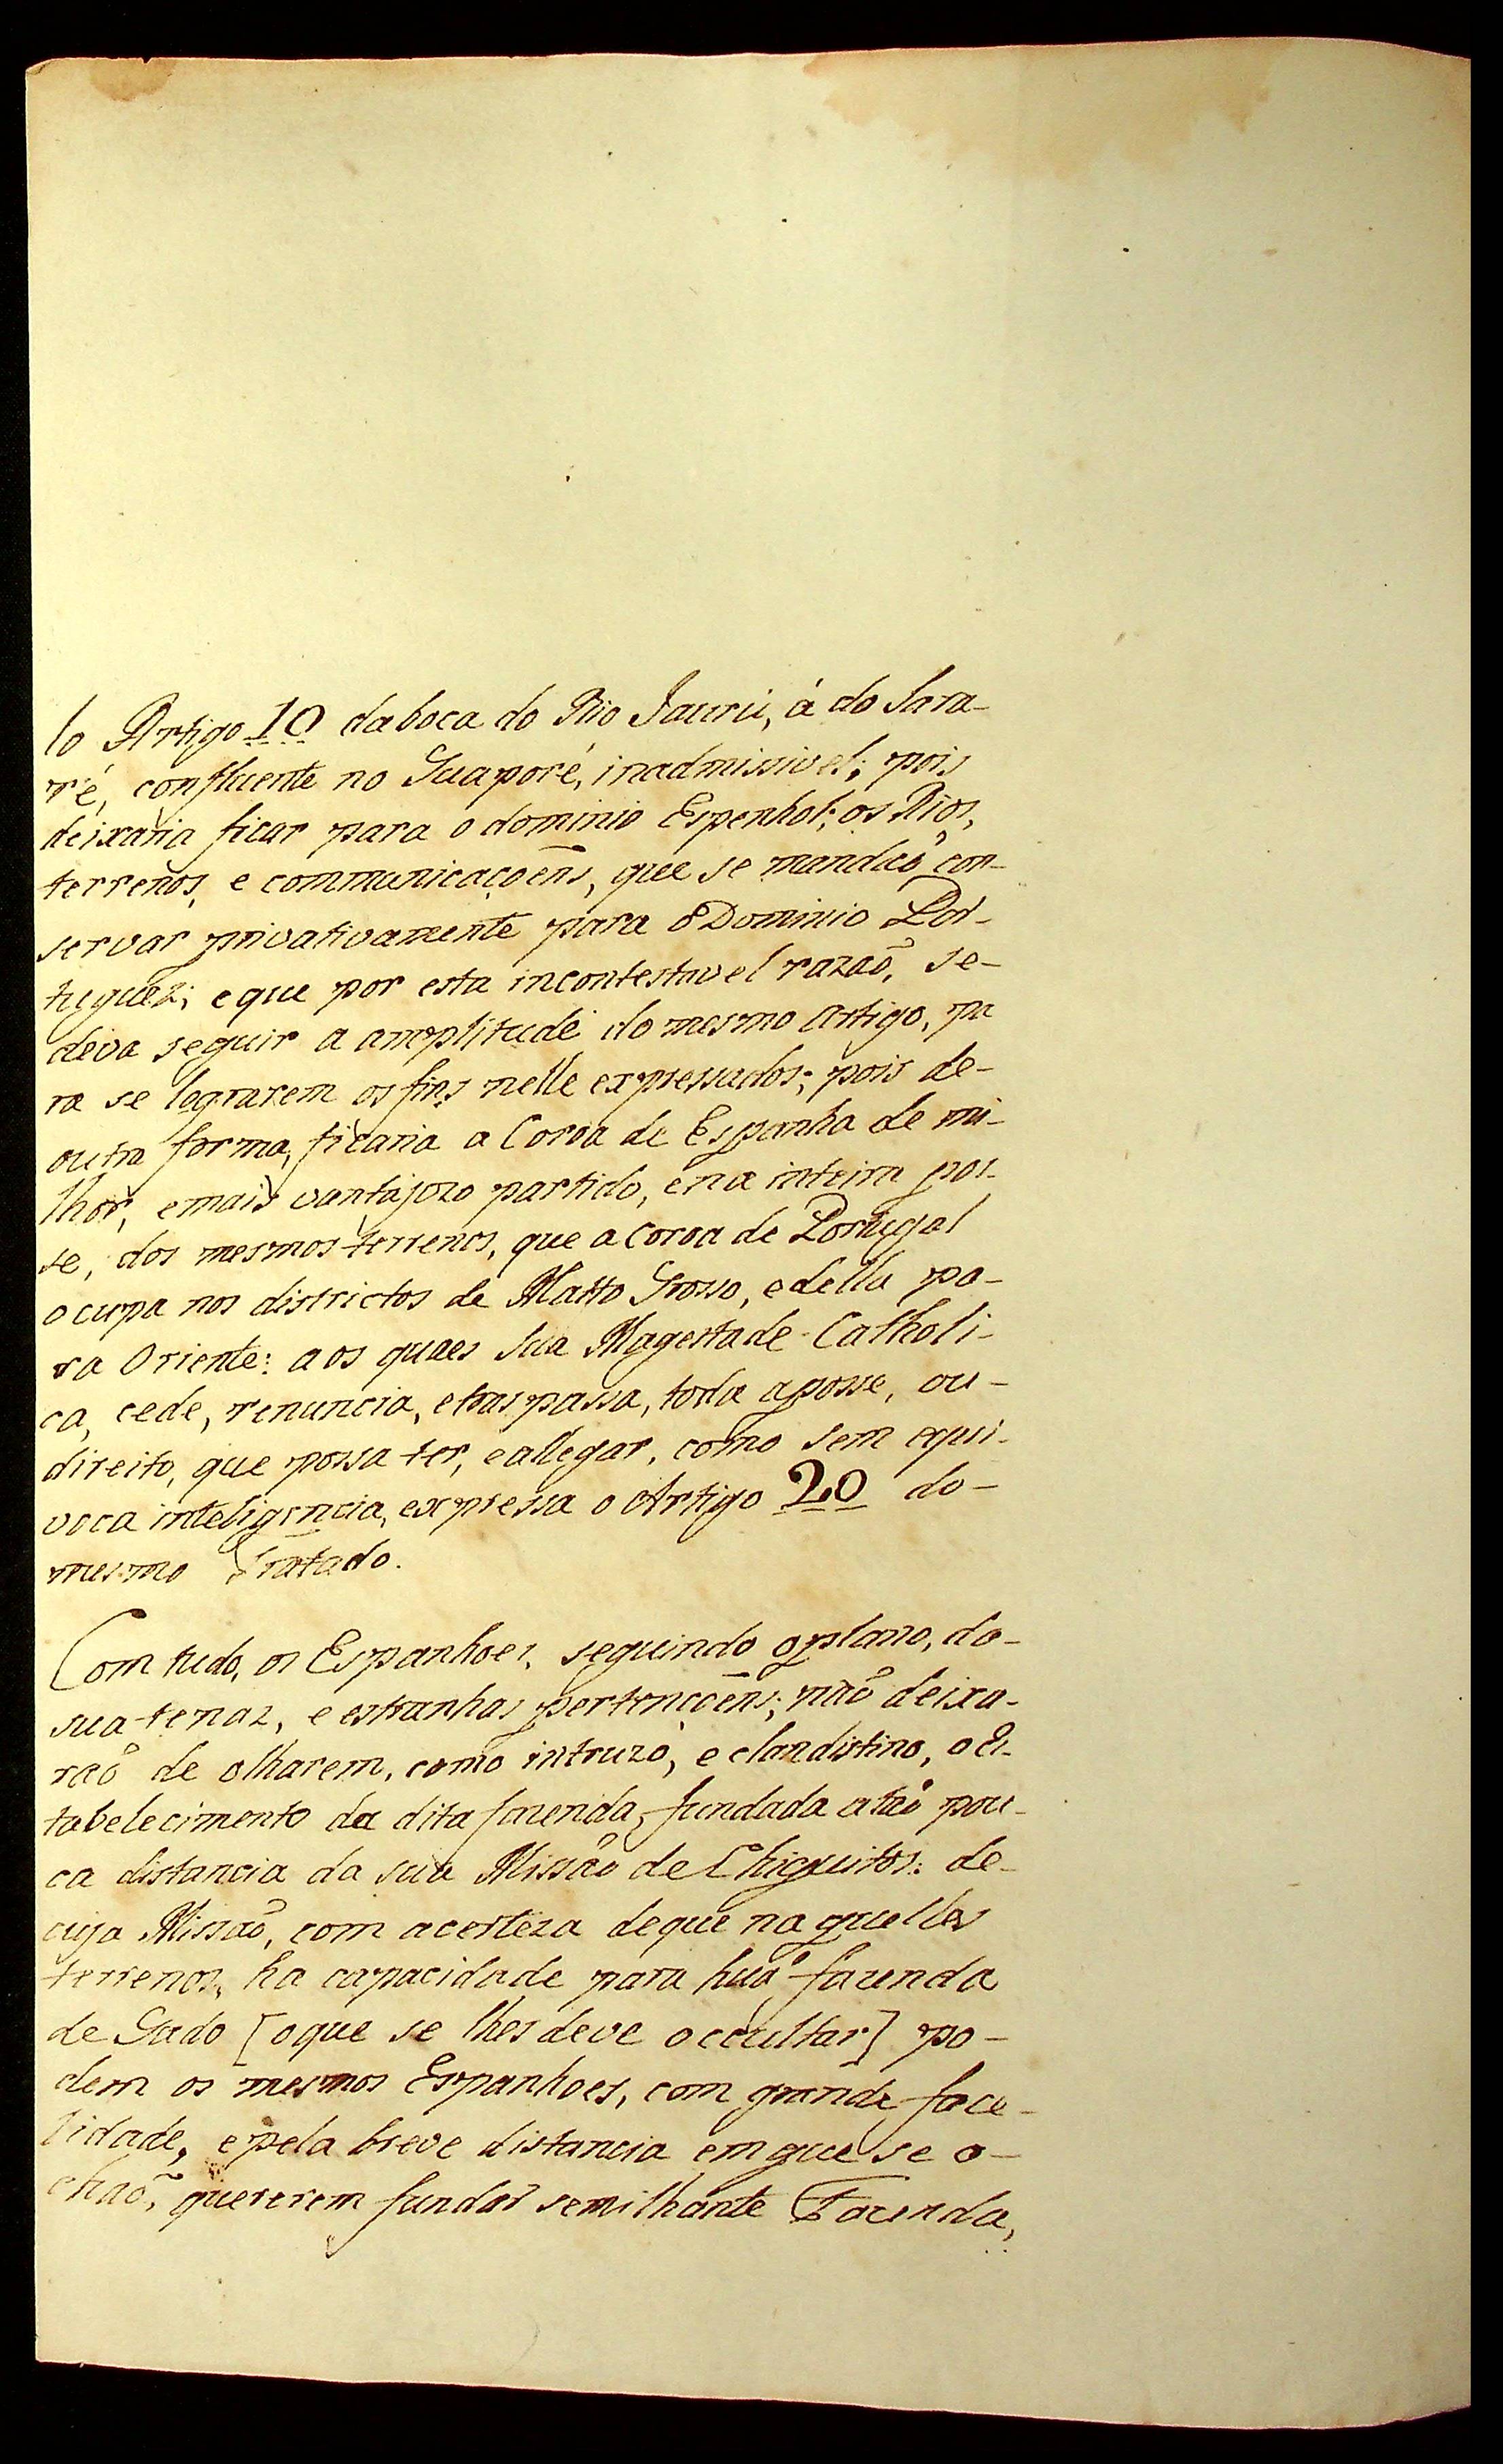 lo Artigo 10 da boca do Rio Jaurú, á do Sara-
ré, confluente no Guaporé, inadmissivel; pois
deixaria ficar para o dominio Espenhol; os Rios,
terrenos, e communicaçoẽns, que se mandaõ con-
servar privativamente para o Dominio Por-
tuguez; e que por esta incontestavel razaõ, se-
deva seguir a amplitude do mesmo artigo, pa
ra se lograrem os fins nelle expressados; pois de-
outra forma, ficaria a Coroa de Espanha de mi-
lhor, e mais vantajozo partido, e na inteira pos-
se, dos mesmos terrenos, que a Coroa de Portugal
ocupa nos districtos de Matto Grosso, e delle pa-
ra Oriente: aos quaes Sua Magestade Catholi-
ca, cede, renuncia, e traspassa, toda a posse, ou-
direito, que possa ter, e allegar, como sem equi-
voca inteligencia, expressa o Artigo 20 do-
mesmo Tratado.
Com tudo, os Espanhoes, seguindo o plano, da-
sua tenaz, e estranhas pertençoẽns; naõ deixa-
raõ de olharem, como intruzo, e clandistino, o Es-
tabelecimento da dita fazenda, fundada a taõ pou-
ca distancia da sua Missaõ de Chiquitos: de-
cuja Missaõ, com a certeza de que naquelles
terrenos, ha capacidade para huã fazenda
de Gado [o que se lhes deve occultar] po-
dem os mesmos Espanhoes, com grande face-
lidade, e pela breve distancia em que se a-
chaõ, quererem fundar semilhante Fazenda,